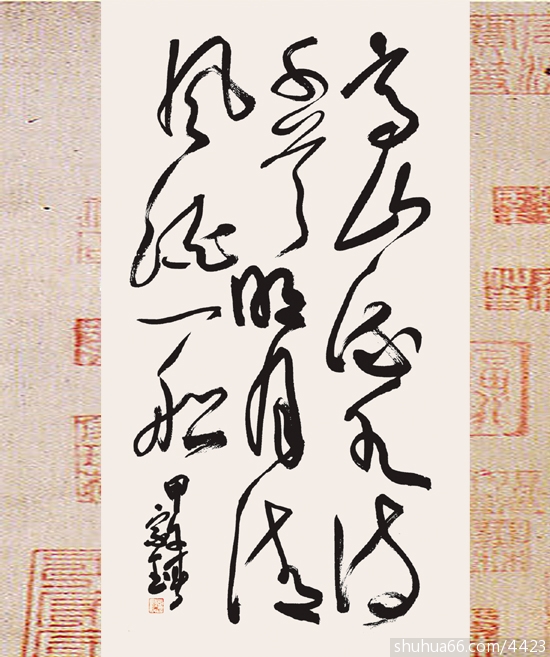 高山流水诗
千首明月清
风酒一船
甲
shuhua66.com/4423